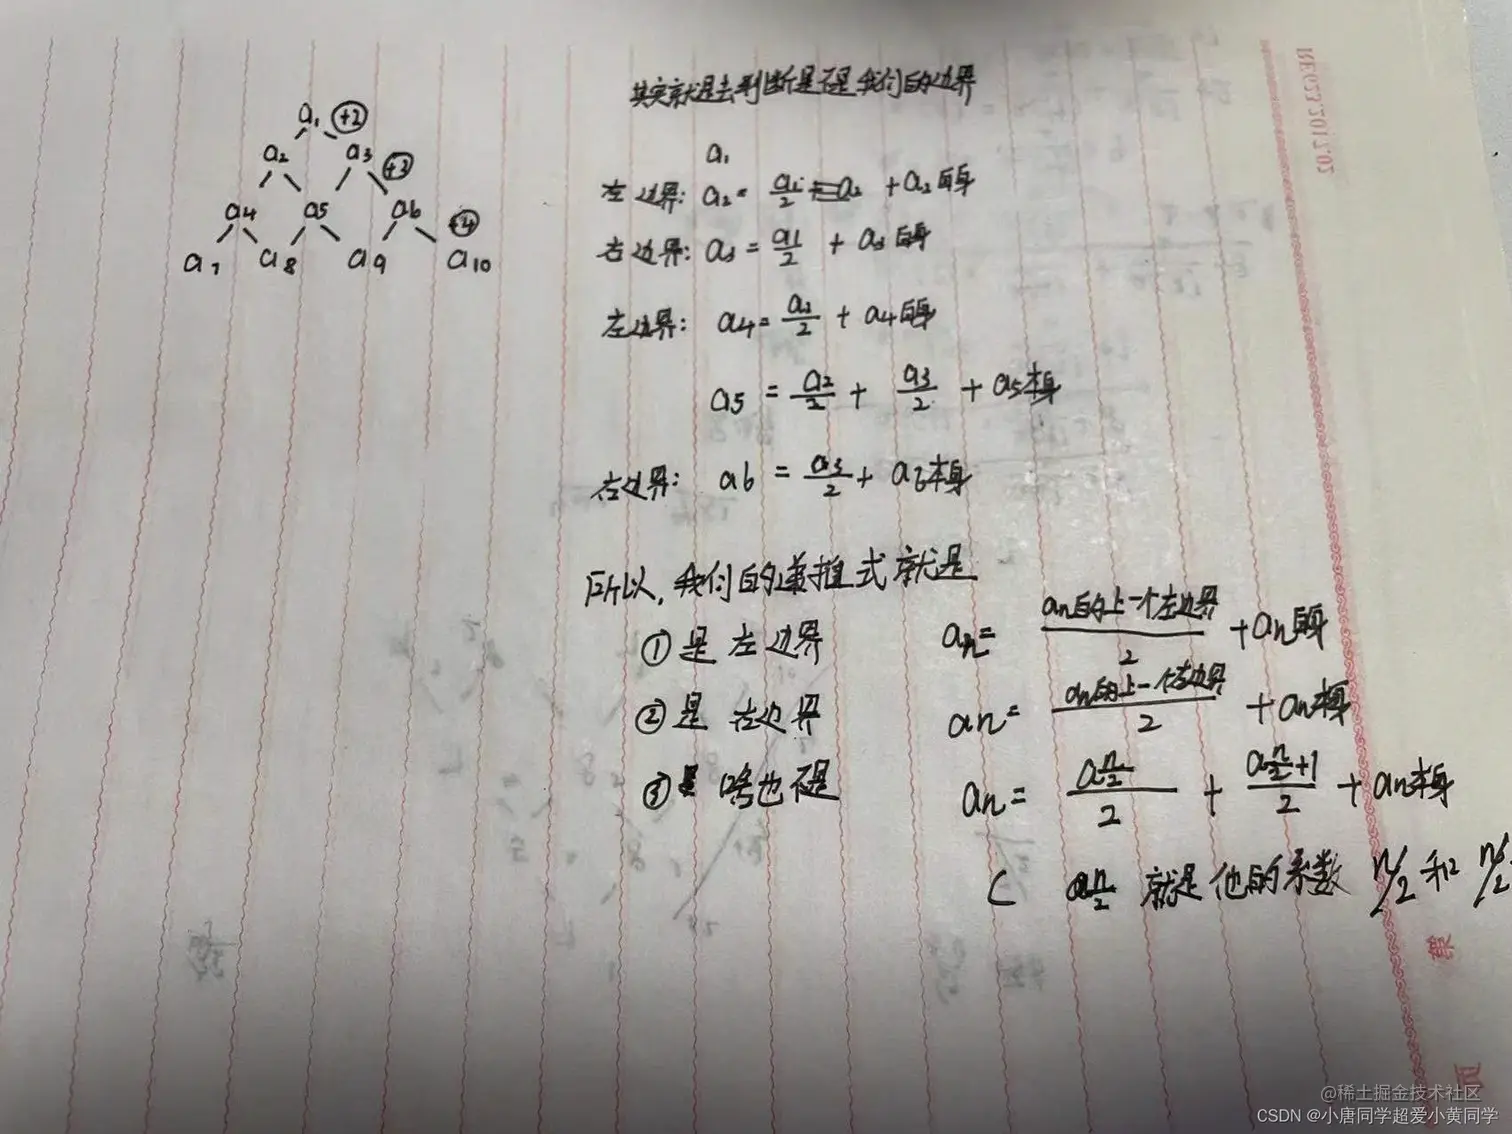 其实就是去判断是不是我们的边界
a₁ +2
a₂ a₃ +3
a₄ a₅ a₆ +4
a₇ a₈ a₉ a₁₀
a₁
左边界: a₂ = a₁/2 + a₂自身
右边界: a₃ = a₁/2 + a₃自身
左边界: a₄ = a₂/2 + a₄自身
a₅ = a₂/2 + a₃/2 + a₅本身
右边界: a₆ = a₃/2 + a₆本身
所以,我们的递推式就是
① 是左边界 aₙ = aₙ的上一个左边界/2 + aₙ自身
② 是右边界 aₙ = aₙ的上一个右边界/2 + aₙ本身
③ 啥也不是 aₙ = a n/2 /2 + a n/2+1 /2 + aₙ本身
( a n/2 就是他的系数 n/2 和 n/2
RE623.2017.02
第
页
@稀土掘金技术社区
CSDN @小唐同学超爱小黄同学